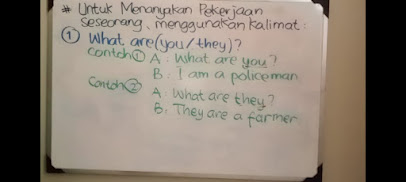 * Untuk Menanyakan Pekerjaan
Seseorang, menggunakan Kalimat:
① What are (you/they)?
Contoh ① A: What are you?
B: I am a policeman
Contoh ② A: What are they?
B: They are a farmer